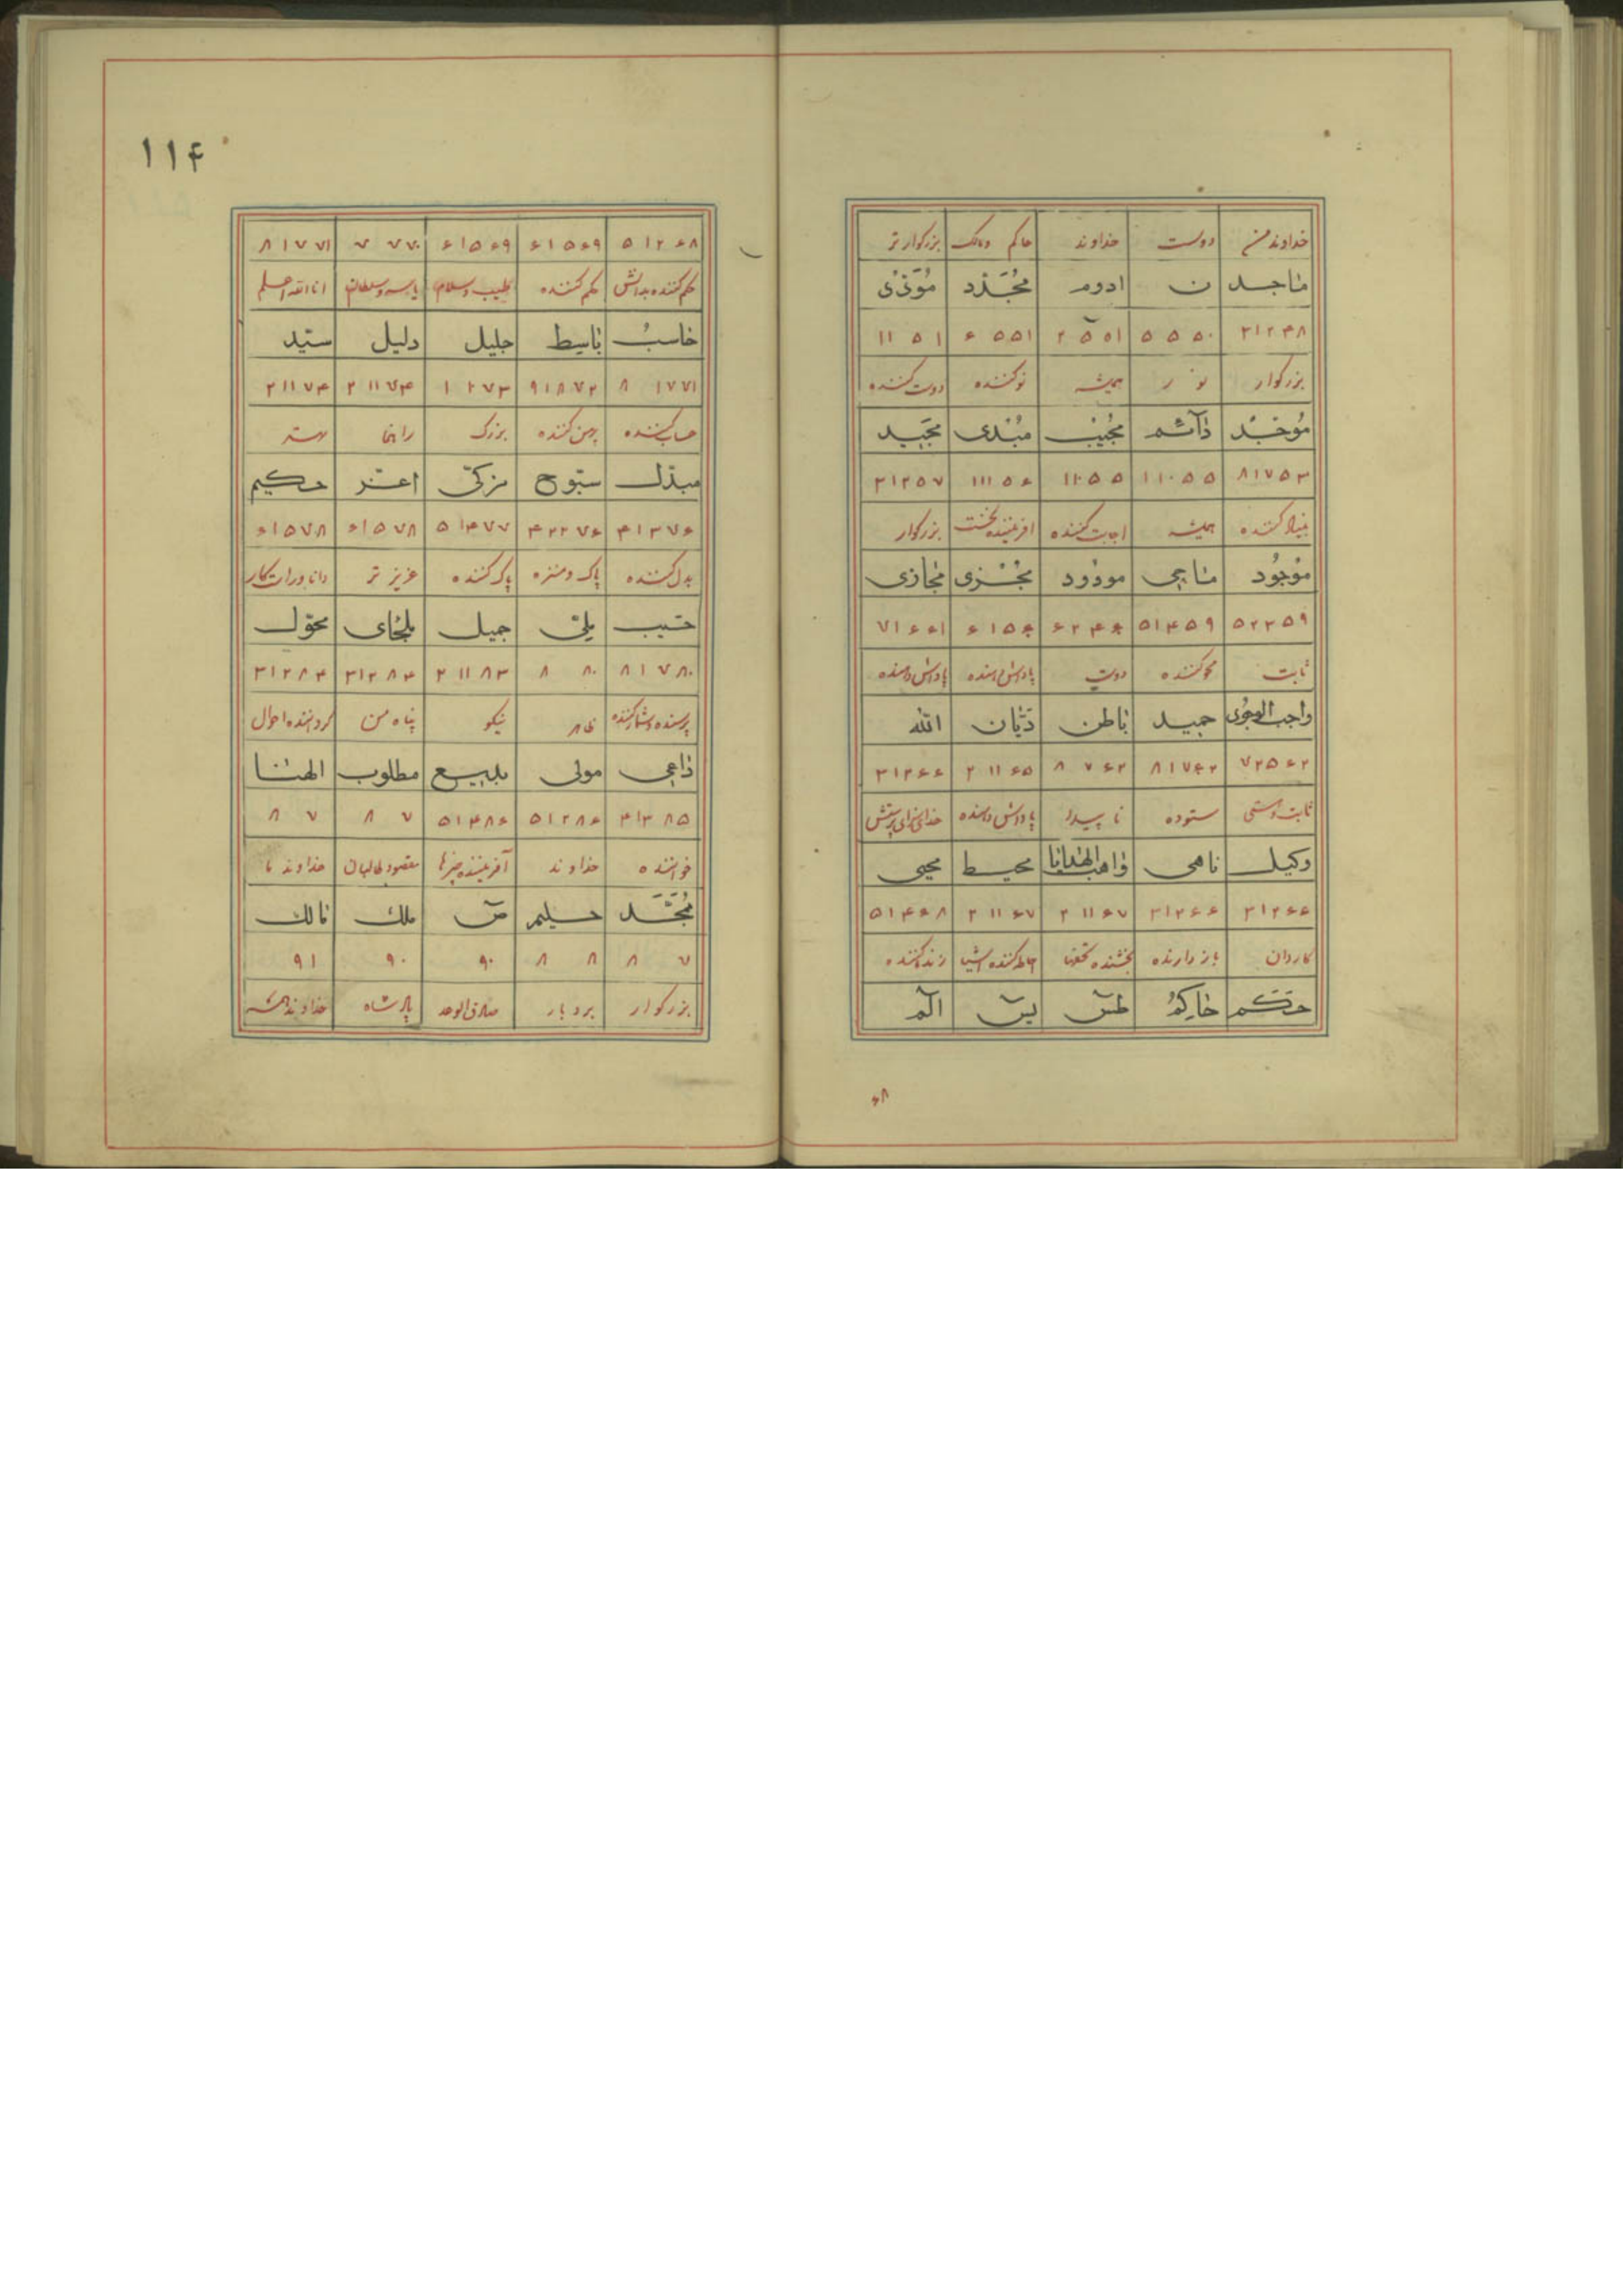 خداوند من دوست خداوند حاکم ومالک بزرکوارتر
ماجد ن ادوم مجدد مؤدی
۲۱۲۴۸ ۵۵۵۰ ۲۵۵۱ ۶۵۵۱ ۱۱۵۱
بزرکوار نور همیشه نوکننده دوست کننده
دآئم مجیب مبدی مجید
۸۱۷۵۳ ۱۱۰۵۵ ۱۱۰۵۵ ۱۱۱۵۶ ۲۱۲۵۷
همیشه اجابت کننده افریننده نخست بزرکوار
موجود ماحی مودود مجزی مجازی
۵۲۲۵۹ ۵۱۴۵۹
ثابت محوکننده دوست پاداش دهنده پاداش دهنده
واجب الوجود حمید باطن دیان الله
۷۲۵۶۲ ۸۱۷۶۲ ۸۷۶۲ ۲۱۱۶۵ ۲۱۲۶۶
ستوده نا پیدا پاداش دهنده خدای سزای پرستش
وکیل ناهی واهب الهدایا محیط محیی
۲۱۲۶۶ ۲۱۲۶۶ ۲۱۱۶۷ ۲۱۱۶۷ ۵۱۴۶۸
کاردان باز دارنده بخشنده تحفها زنده کننده
حکم حاکم طس یس الم
۶۸
۱۱۴
۵۱۲۶۸ ۶۱۵۶۹ ۶۱۵۶۹ ۷۷۷۰ ۸۱۷۷۱
حکم کننده طبیب وسلام انا الله اعلم
حاسب باسط جلیل دلیل سید
۸۱۷۷۱ ۹۱۸۷۲ ۱۲۷۳ ۲۱۱۷۴ ۲۱۱۷۴
حساب کننده پهن کننده بزرک راهنما مهتر
مبدل سبوح مزکی اعز حکیم
۴۱۳۷۶ ۴۲۲۷۶ ۵۱۴۷۷ ۶۱۵۷۸ ۶۱۵۷۸
بدل کننده پاک ومنزه پاک کننده عزیز تر دانا وراست کار
حسیب جمیل ملجای محول
۸۱۷۸۰ ۸۸۰ ۲۱۱۸۳ ۲۱۲۸۴ ۲۱۲۸۴
نیکو پناه من کرداننده احوال
داعی مولی بدیع مطلوب الهنا
۴۱۳۸۵ ۵۱۲۸۶ ۵۱۴۸۶ ۸۷ ۸۷
خواننده خداوند آفریننده چیزها مقصود طالبان خداوند ما
ممجد حلیم ص ملک مالک
۸۷ ۸۸ ۹۰ ۹۰ ۹۱
بزرکوار بردبار صادق الوعد پادشاه خداوند همه